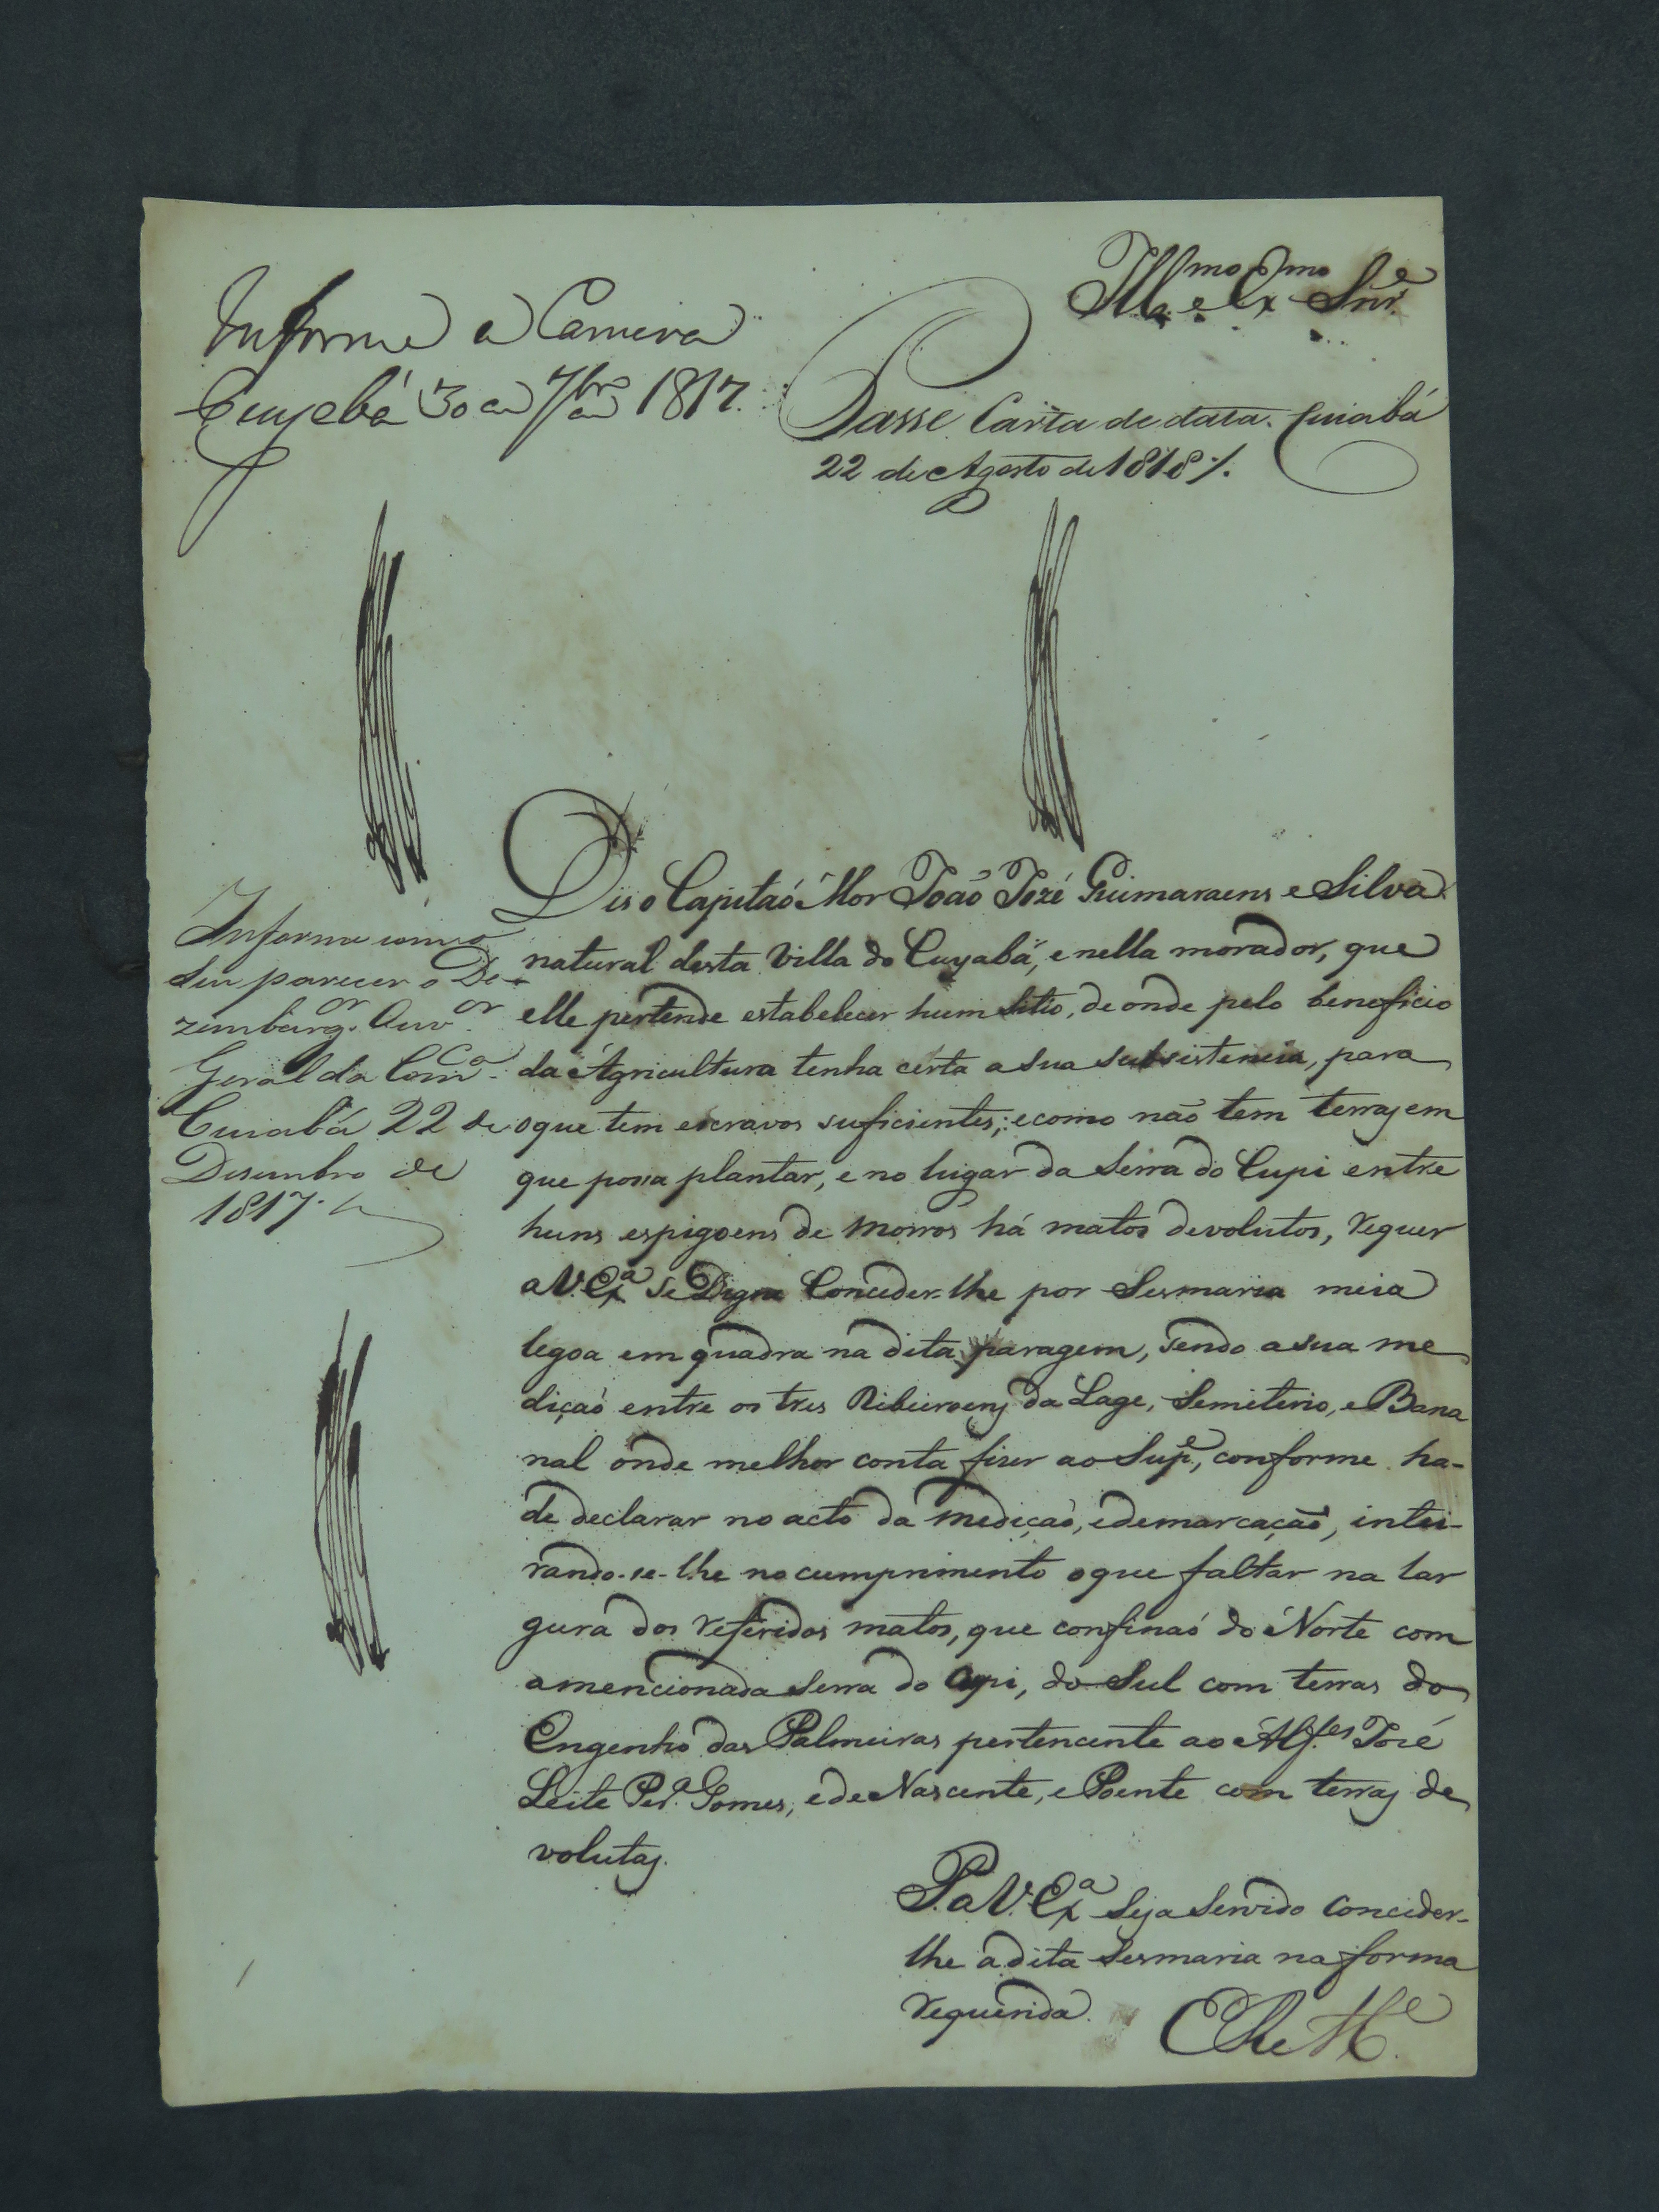 Informe a Camera
Cuyabá 30 de 7bro de 1817.
Illmo e Exmo Snre
Passe Carta de data. Cuiabá
22 de Agosto de 1818 /.
Informe com o
seu parecer o De-
zembargor Ouvor
Geral da Comca
Cuiabá 22 de
Desembro de
1817.
Dis o Capitaó Mor João Jozé Guimaraens e Silva
natural desta Villa do Cuyabá, e nella morador, que
elle pertende estabelecer hum sitio, de onde pelo beneficio
da Agricultura tenha certa a sua subsistencia, para
o que tem escravos suficientes; e como não tem terras em
que possa plantar, e no lugar da Serra do Cupi entre
huns espigoens de morros há matos devolutos, requer
a V. Exa Se Digne Conceder-lhe por Sesmaria meia
legoa em quadra na dita paragem, sendo a sua me
diçaó entre os tres Ribeiroens da Lage, Semiterio, e Bana
nal onde melhor conta fizer ao Supe, conforme ha-
de declarar no acto da mediçaó, e demarcação, intei-
rando-se-lhe no cumprimento o que faltar na lar
gura dos referidos matos, que confinaó do Norte com
a mencionada Serra do Cupi, do Sul com terras do
Engenho das Palmeiras pertencente ao Alfes Jozé
Leite Pera Gomes, e de Nascente, e Poente com terras de
volutas.
P. a V. Exa Seja Servido Conceder-
lhe a dita Sesmaria na forma
requerida.
E R Me.